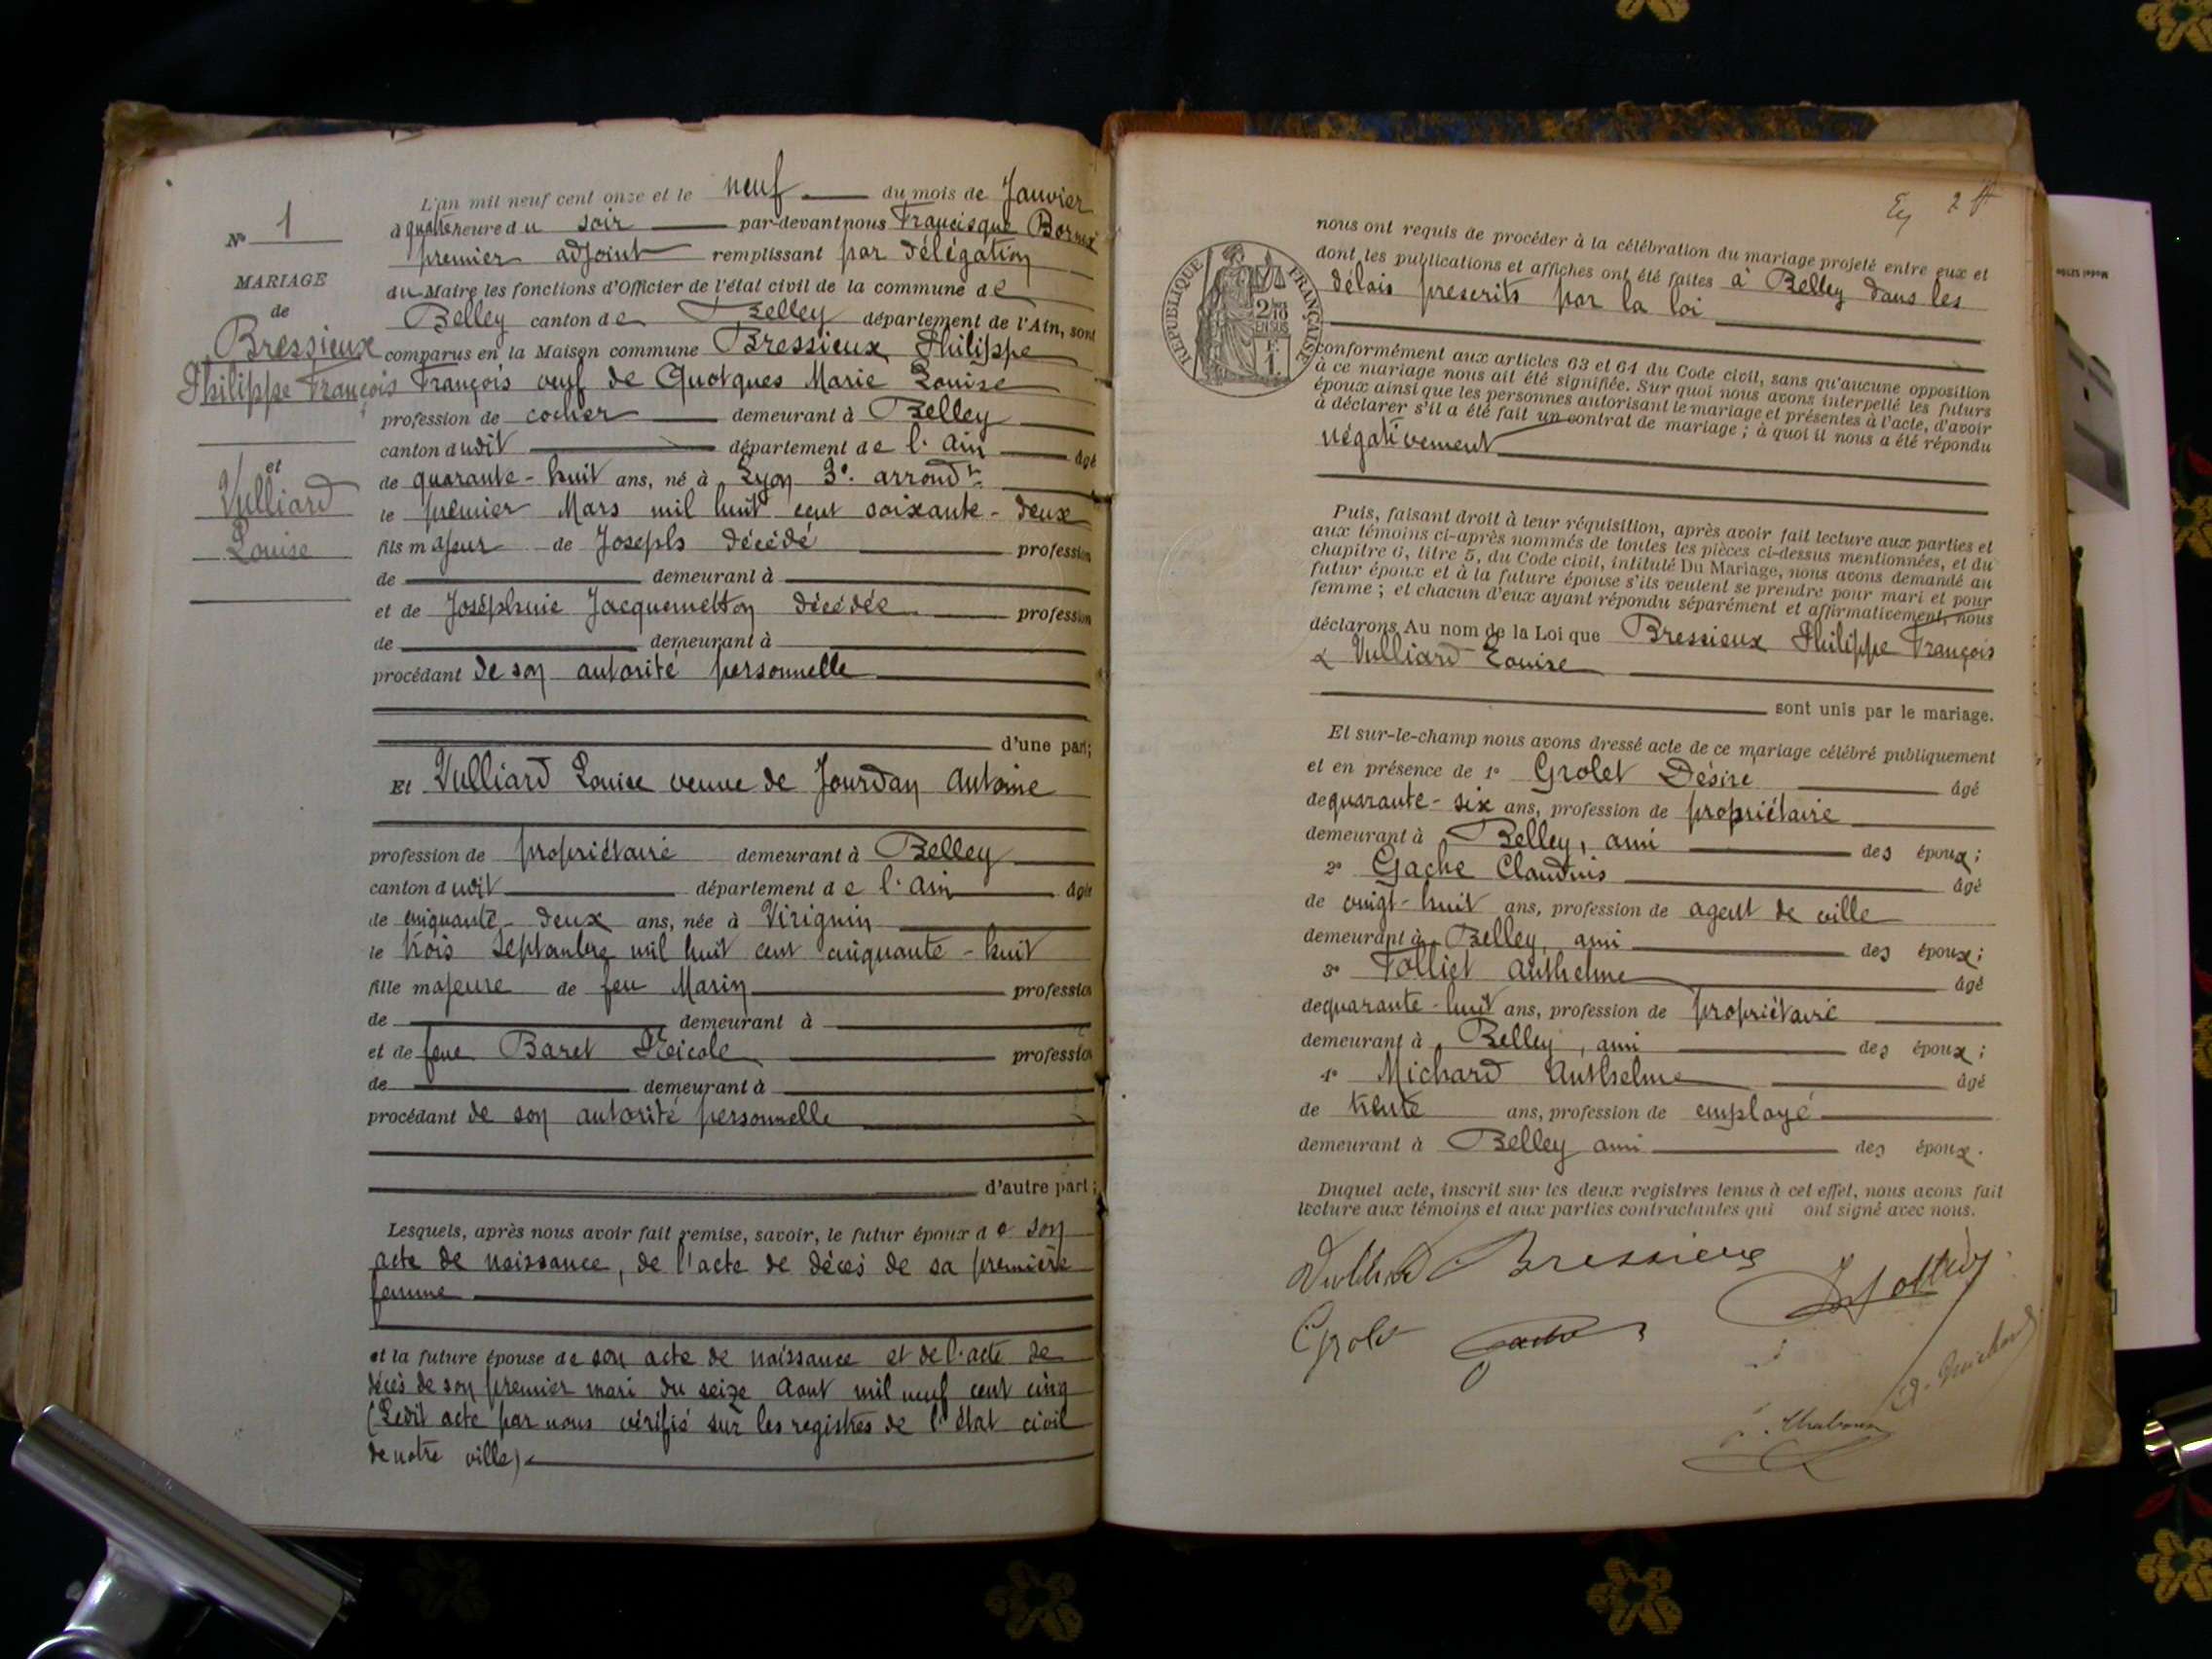 L'an mil neuf cent onze et le neuf du mois de Janvier
à quatre heure du soir par-devant nous Francisque
premier adjoint remplissant par délégation
du Maire les fonctions d'Officier de l'état civil de la commune de
Belley canton de Belley département de l'Ain, sont
comparus en la Maison commune Bressieux Philippe
François veuf de Quotques Marie Louise
profession de cocher demeurant à Belley
canton dudit département de l'Ain âgé
de quarante-huit ans, né à Lyon 3e. arrondt
le premier Mars mil huit cent soixante-deux
fils majeur de Joseph décédé profession
de demeurant à
et de Joséphine Jacquemetton décédée profession
de demeurant à
procédant de son autorité personnelle
d'une part;
Et Vulliard Louise veuve de Jourdan Antoine
profession de propriétaire demeurant à Belley
canton dudit département de l'Ain âgée
de cinquante-deux ans, née à Virignin
le trois Septembre mil huit cent cinquante-huit
fille majeure de feu Marin profession
de demeurant à
et de feue Baret profession
de demeurant à
procédant de son autorité personnelle
d'autre part;
Lesquels, après nous avoir fait remise, savoir, le futur époux de son
acte de naissance, de l'acte de décès de sa première
femme
et la future épouse de son acte de naissance et de l'acte de
décès de son premier mari du seize Aout mil neuf cent cinq
(Ledit acte par nous vérifié sur les registres de l'état civil
de notre ville)
No 1
MARIAGE
de
Bressieux
Philippe François
et
Vulliard
Louise
2
nous ont requis de procéder à la célébration du mariage projeté entre eux et
dont les publications et affiches ont été faites à Belley dans les
délais prescrits par la loi
RÉPUBLIQUE FRANÇAISE
2/10
EN SUS
F.
1.
conformément aux articles 63 et 64 du Code civil, sans qu'aucune opposition
à ce mariage nous ait été signifiée. Sur quoi nous avons interpellé les futurs
époux ainsi que les personnes autorisant le mariage et présentes à l'acte, d'avoir
à déclarer s'il a été fait un contrat de mariage; à quoi il nous a été répondu
négativement
Puis, faisant droit à leur réquisition, après avoir fait lecture aux parties et
aux témoins ci-après nommés de toutes les pièces ci-dessus mentionnées, et du
chapitre 6, titre 5, du Code civil, intitulé Du Mariage, nous avons demandé au
futur époux et à la future épouse s'ils veulent se prendre pour mari et pour
femme; et chacun d'eux ayant répondu séparément et affirmativement, nous
déclarons Au nom de la Loi que Bressieux Philippe François
& Vulliard Louise
sont unis par le mariage.
Et sur-le-champ nous avons dressé acte de ce mariage célébré publiquement
et en présence de 1° Grolet Désiré âgé
de quarante-six ans, profession de propriétaire
demeurant à Belley, ami des époux;
2° Gache Claudius âgé
de vingt-huit ans, profession de agent de ville
demeurant à Belley, ami des époux;
3° Folliet Anthelme âgé
de quarante-huit ans, profession de propriétaire
demeurant à Belley, ami des époux;
4° Michard Anthelme âgé
de trente ans, profession de employé
demeurant à Belley ami des époux.
Duquel acte, inscrit sur les deux registres tenus à cet effet, nous avons fait
lecture aux témoins et aux parties contractantes qui ont signé avec nous.
Bressieux
Grolet
Gache